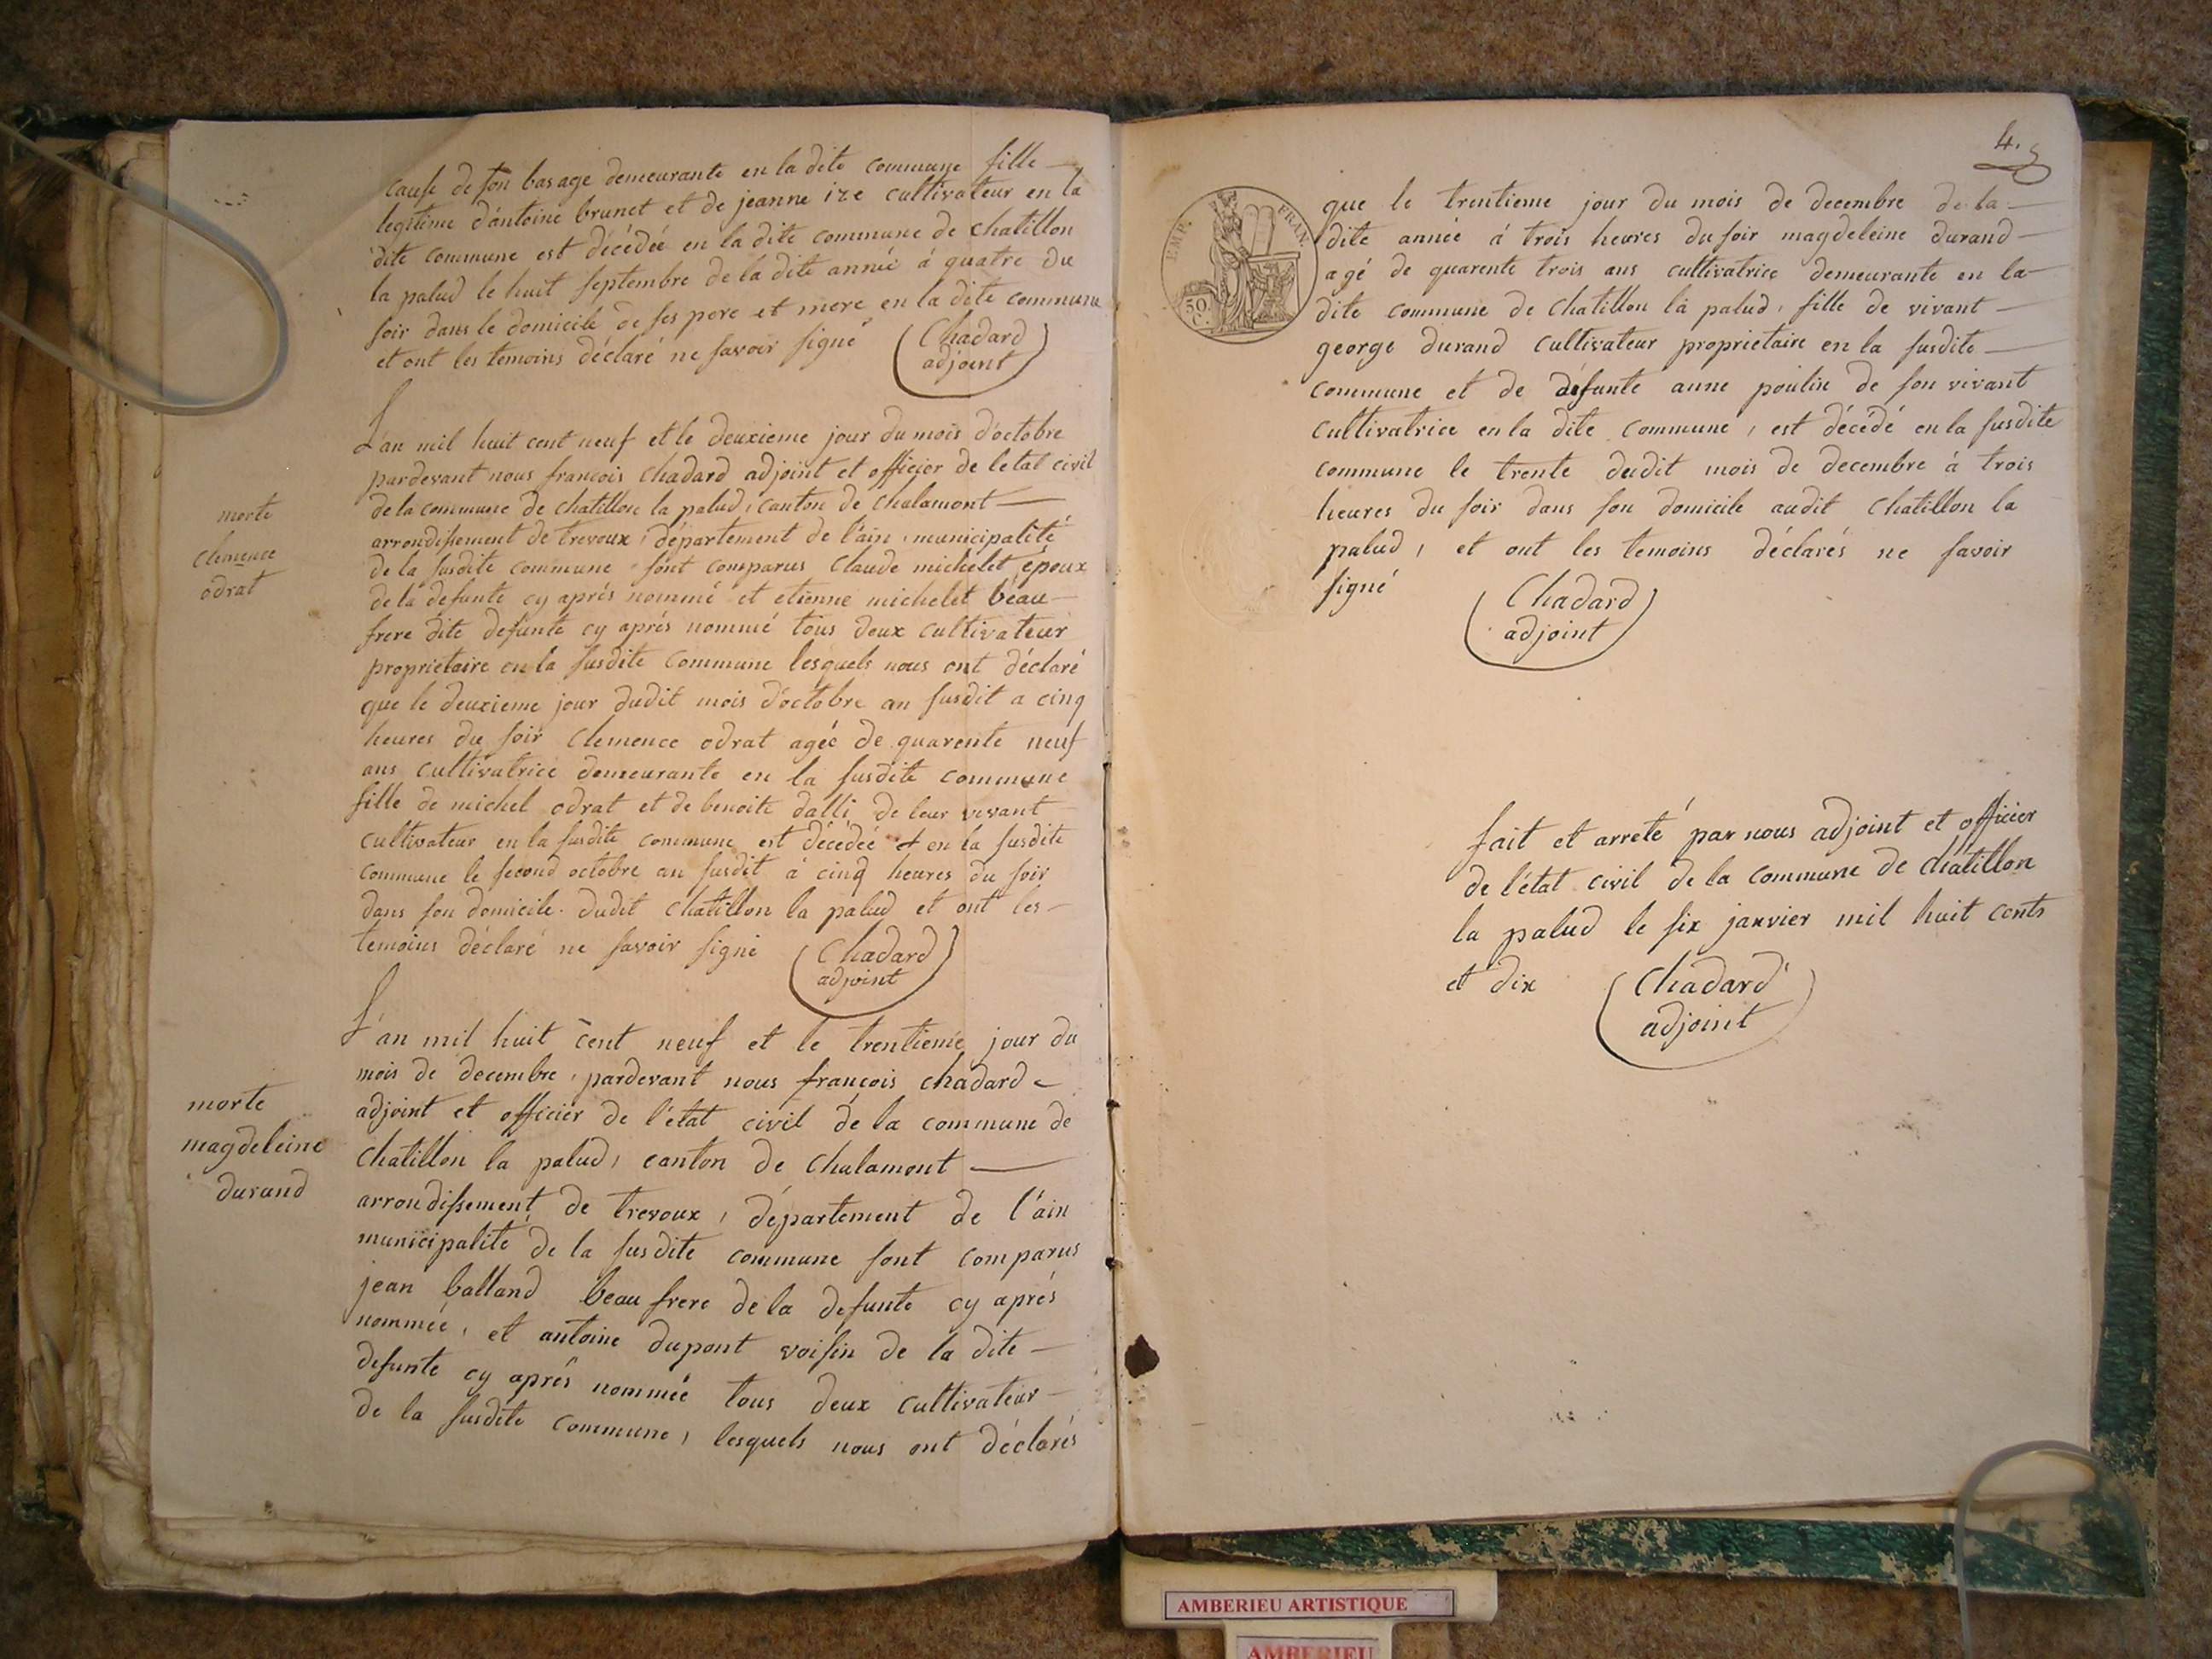 cause de son bas age demeurante en la dite commune fille
legitime d'antoine brunet et de jeanne ize cultivateur en la
dite commune est décédée en la dite commune de chatillon
la palud le huit septembre de la dite année à quatre du
soir dans le domicile de ses pere et mere en la dite commune
et ont les temoins déclaré ne savoir signé
Chadard
adjoint
morte
clemence
odrat
L'an mil huit cent neuf et le deuxieme jour du mois d'octobre
pardevant nous francois chadard adjoint et officier de letat civil
de la commune de chatillon la palud, canton de chalamont
arrondissement de trevoux, département de l'ain, municipalité
de la susdite commune sont comparus Claude michelet époux
de la defunte cy aprés nommé et etienne michelet beau
frere dite defunte cy aprés nommé tous deux cultivateur
proprietaire en la susdite commune lesquels nous ont déclaré
que le deuxieme jour dudit mois d'octobre an susdit a cinq
heures du soir clemence odrat agée de quarente neuf
ans cultivatrice demeurante en la susdite commune
fille de michel odrat et de benoite dalli de leur vivant
cultivateur en la susdite commune est décédée et en la susdite
commune le second octobre an susdit à cinq heures du soir
dans son domicile dudit chatillon la palud et ont les
temoins déclaré ne savoir signé
Chadard
adjoint
morte
magdeleine
durand
L'an mil huit cent neuf et le trentieme jour du
mois de decembre, pardevant nous françois chadard
adjoint et officier de l'état civil de la commune de
chatillon la palud, canton de chalamont
arrondissement de trevoux, département de l'ain
municipalité de la susdite commune sont comparus
jean balland beau frere de la defunte cy aprés
nommée, et antoine dupont voisin de la dite
defunte cy aprés nommée tous deux cultivateur
de la susdite commune, lesquels nous ont déclarés
4.
EMP. FRAN.
50
C.
que le trentieme jour du mois de decembre de la
dite année á trois heures du soir magdeleine durand
agé de quarente trois ans cultivatrice demeurante en la
dite commune de chatillon la palud, fille de vivant
george durand cultivateur proprietaire en la susdite
commune et de défunte anne poulin de son vivant
cultivatrice en la dite commune, est décédé en la susdite
commune le trente dudit mois de decembre à trois
heures du soir dans son domicile audit chatillon la
palud, et ont les temoins déclarés ne savoir
signé
Chadard
adjoint
fait et arreté par nous adjoint et officier
de l'état civil de la commune de chatillon
la palud le six janvier mil huit cents
et dix
Chadard
adjoint
AMBERIEU ARTISTIQUE
AMBERIEU